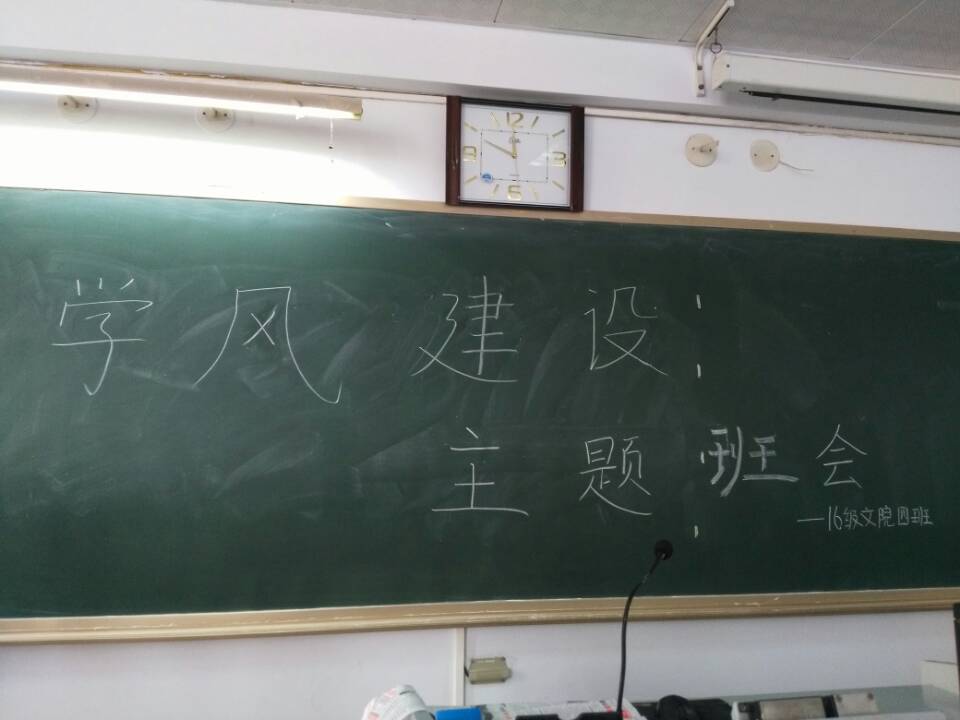 12
9
3
6
学风建设
主题班会
—16级文院四班